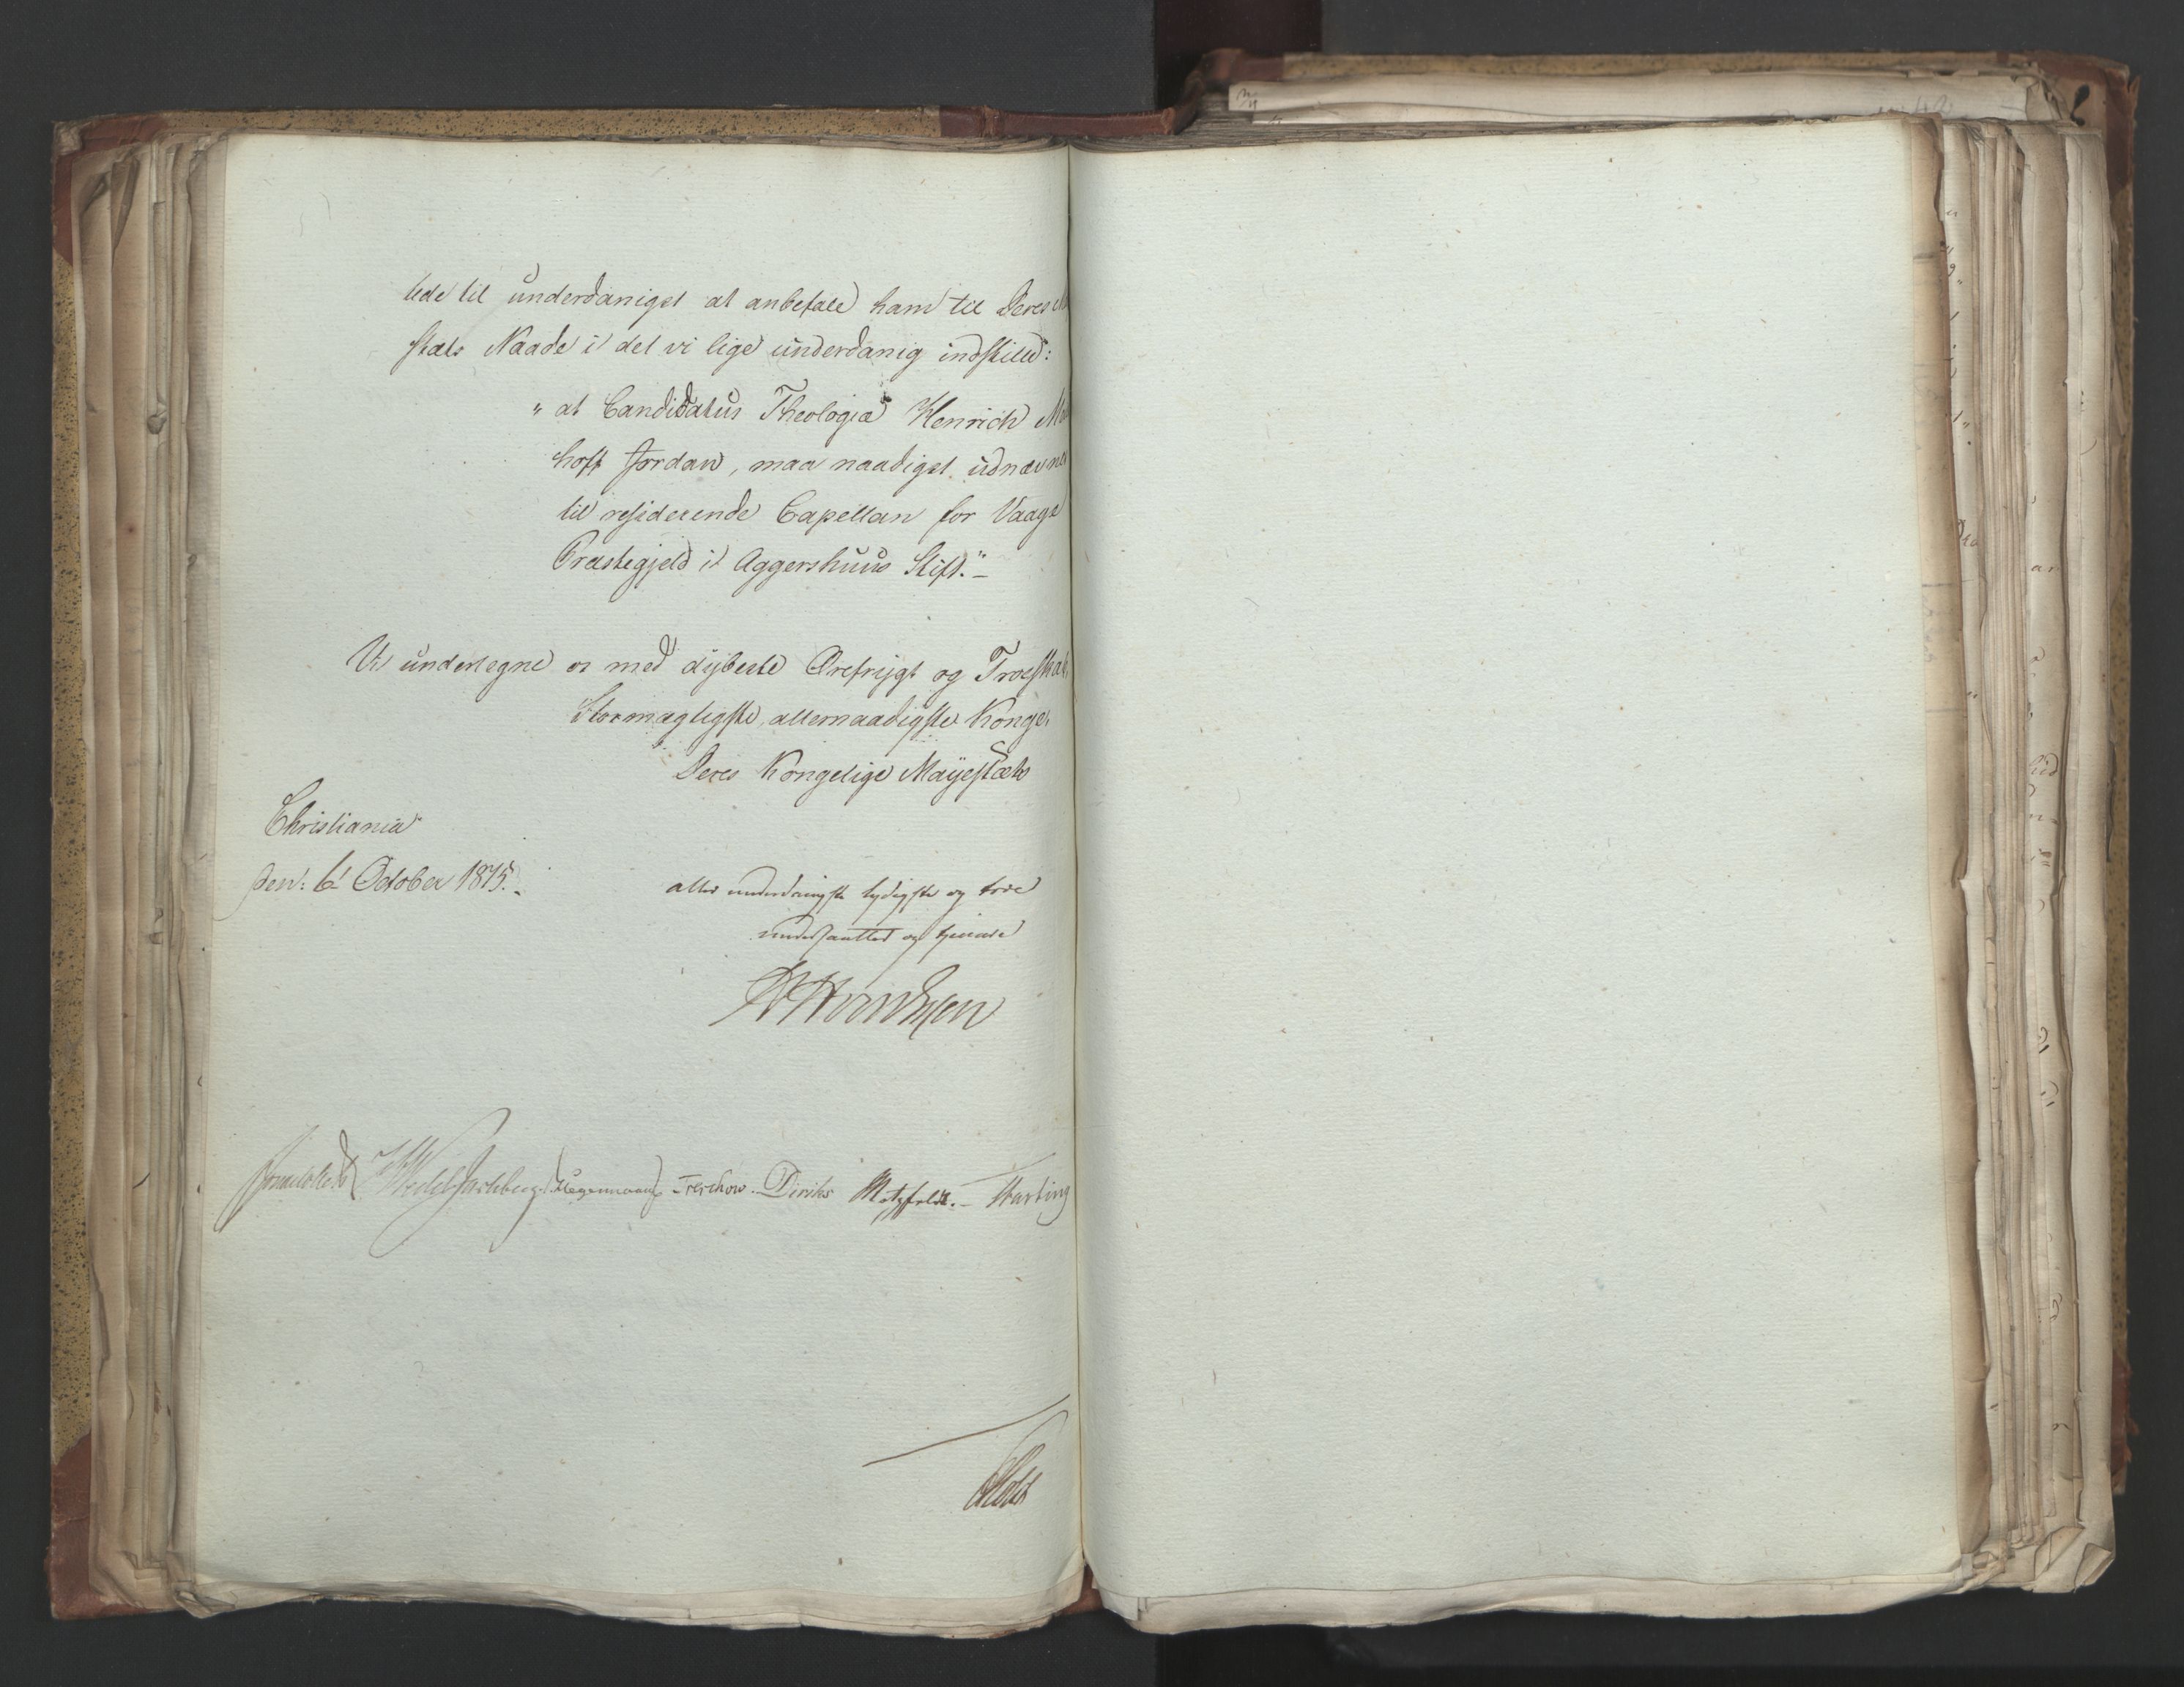 lede til underdanigst at anbefale ham til Deres
stæts Naade i det vi lige underdanig indstille:
"at Candidatus Theologiæ Henrich
hoff Jordan, maa naadigst udnævne
til residerende Capellan for Vaage
Præstegjeld i Aggershuus Stift."-
Vi undertegne os med dybeste Ærefrygt og Troeskab
Stormægtigste, allernaadigste Konge.
Deres Kongelige Mayestæts
Christiania
den: 6 October 1815.
aller underdanigste lydigste og troe
undersaatter og tjenere
Wedel Jarlsberg. Hegermann Treschow. Diriks Motzfeldt. - Harbing
Holst